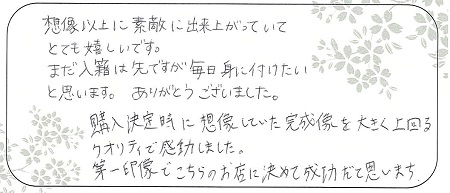 想像以上に素敵に出来上がっていて
とても嬉しいです。
まだ入籍は先ですが毎日身に付けたい
と思います。 ありがとうございました。
購入決定時に想像していた完成像を大きく上回る
クオリティで感動しました。
第一印象でこちらのお店に決めて成功だと思います